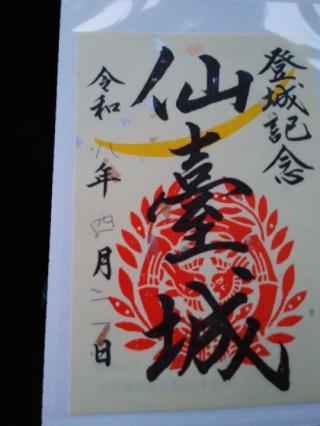 登城記念
仙臺城
令和八年四月二一日